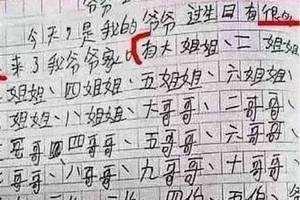 爷爷
今天,是我的爷爷过生日有很
来了我爷爷家。有大姐姐、二姐姐
姐姐、四姐姐、五姐姐、六姐姐、
姐姐、八姐姐、大哥哥、二哥哥、
哥哥、四哥哥、五哥哥、六哥哥、
哥哥、八哥哥、九哥哥、十哥哥、